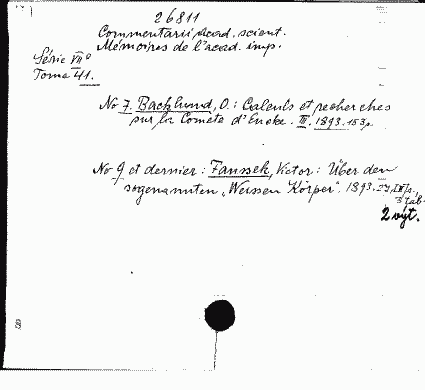 26811
Commentarii acad. scient.
Mémoires de l'acad. imp.
Série VII°
Tome 41.
No 7. Backlund, O.: Calculs et recherches
sur la Comète d'Encke. III. 1893. 153 p.
No 9 et dernier: Faussek, Victor: Über den
sogenannten „Weissen Körper". 1893. 27,
3 Tab.
2 výt.